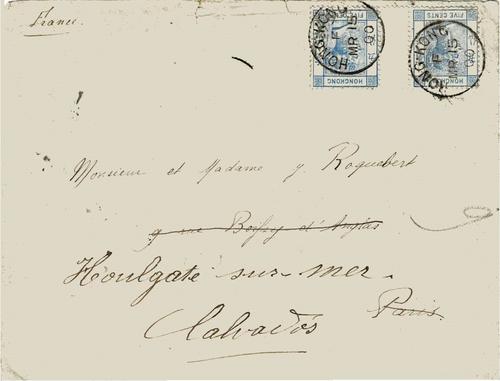 France.
FIVE CENTS
HONGKONG
HONG-KONG
F
MR 15
00
FIVE CENTS
HONGKONG
HONG-KONG
F
MR 15
00
Monsieur et Madame J. Roquebert
9 rue Boissy d'Anglas
Houlgate sur-mer.
Paris.
Calvados